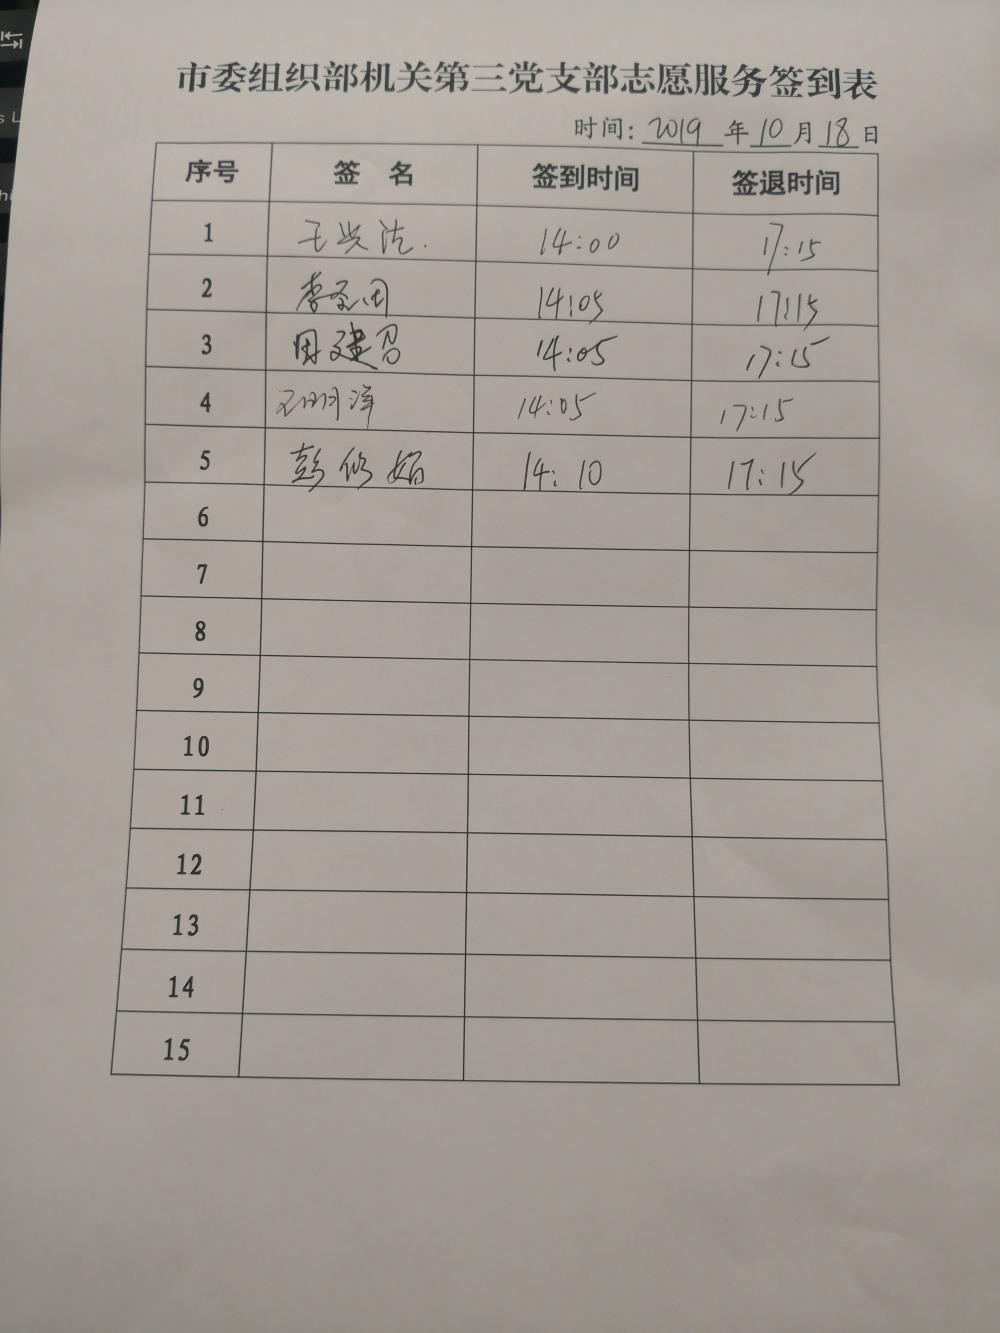 市委组织部机关第三党支部志愿服务签到表
时间: 2019 年 10 月 18 日
序号 签 名 签到时间 签退时间
1 王兴法 14:00 17:15
2 14:05 17:15
3 周建召 14:05 17:15
4 14:05 17:15
5 彭修娟 14:10 17:15
6
7
8
9
10
11
12
13
14
15